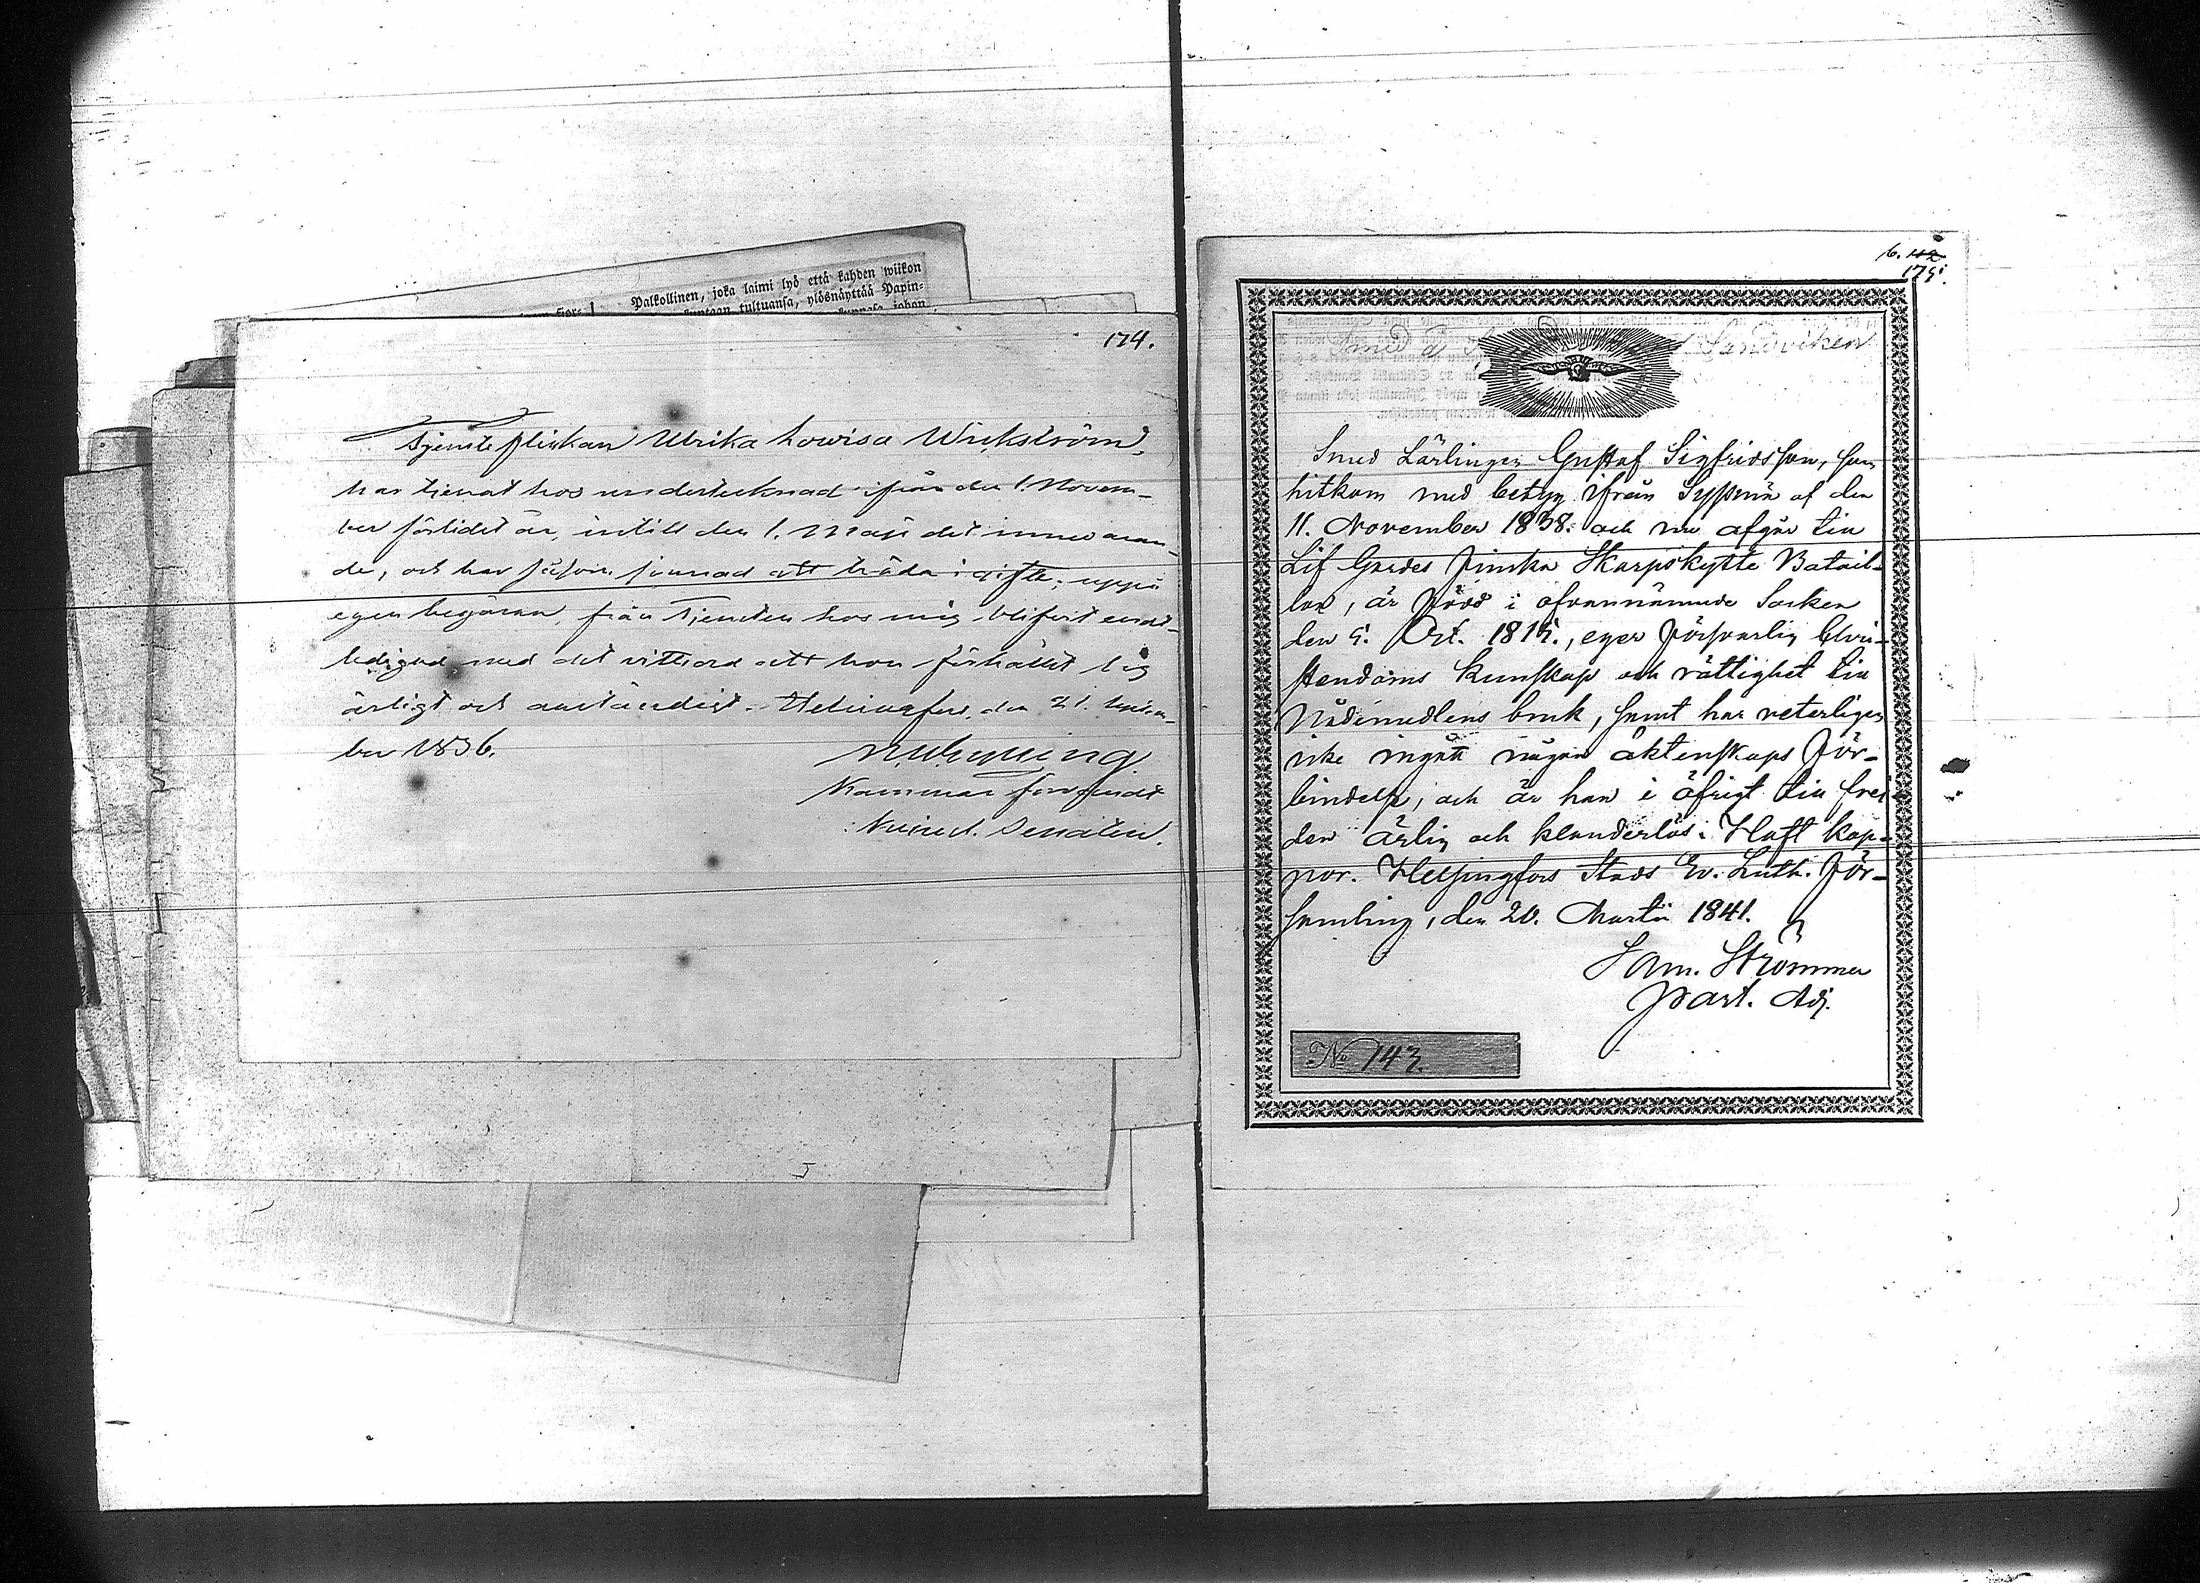 Palkollinen, joka laimi lyö että kahden wiikon
tultuansa, ylösnäyttää Papin-
174.
Tjensteflickan Ulrika Lowisa Wickström,
har tjenat hos undertecknad ifrån den 1. Novem-
ber förlidet år, intill den 1. Maji det innevaran-
de, och har sådan att träda i gifte, uppå
egen begäran, från tjensten hos mig blifvit ent-
ledigad med det vittsord att hon förhållit sig
ärligt och anständigt. Helsingfors, den 21.
ber 1836.
Kammar
Senaten.
6. 42
175.
Smed å Sandviken
Smed Lärlingen Gustaf Sigfridsson, som
hitkom med betyg ifrån Sippnä af den
11. November 1838. och nu afgår till
Lif Gardes Finska Skarpskytte Batail-
lon, är född i ofvannämnde Socken
den 5. Oct. 1815., eger försvarlig Chri-
stendoms kunskap och rättighet till
Nådemedlens bruk, samt har veterligen
icke ingått någon äktenskaps för-
bindelse, och är han i öfrigt till frej-
den ärlig och klanderlös. Haft kop-
por. Helsingfors Stads Ev. Luth. För-
samling, den 20. Martii 1841.
Sam. Strömmer
past. Adj.
No 143.